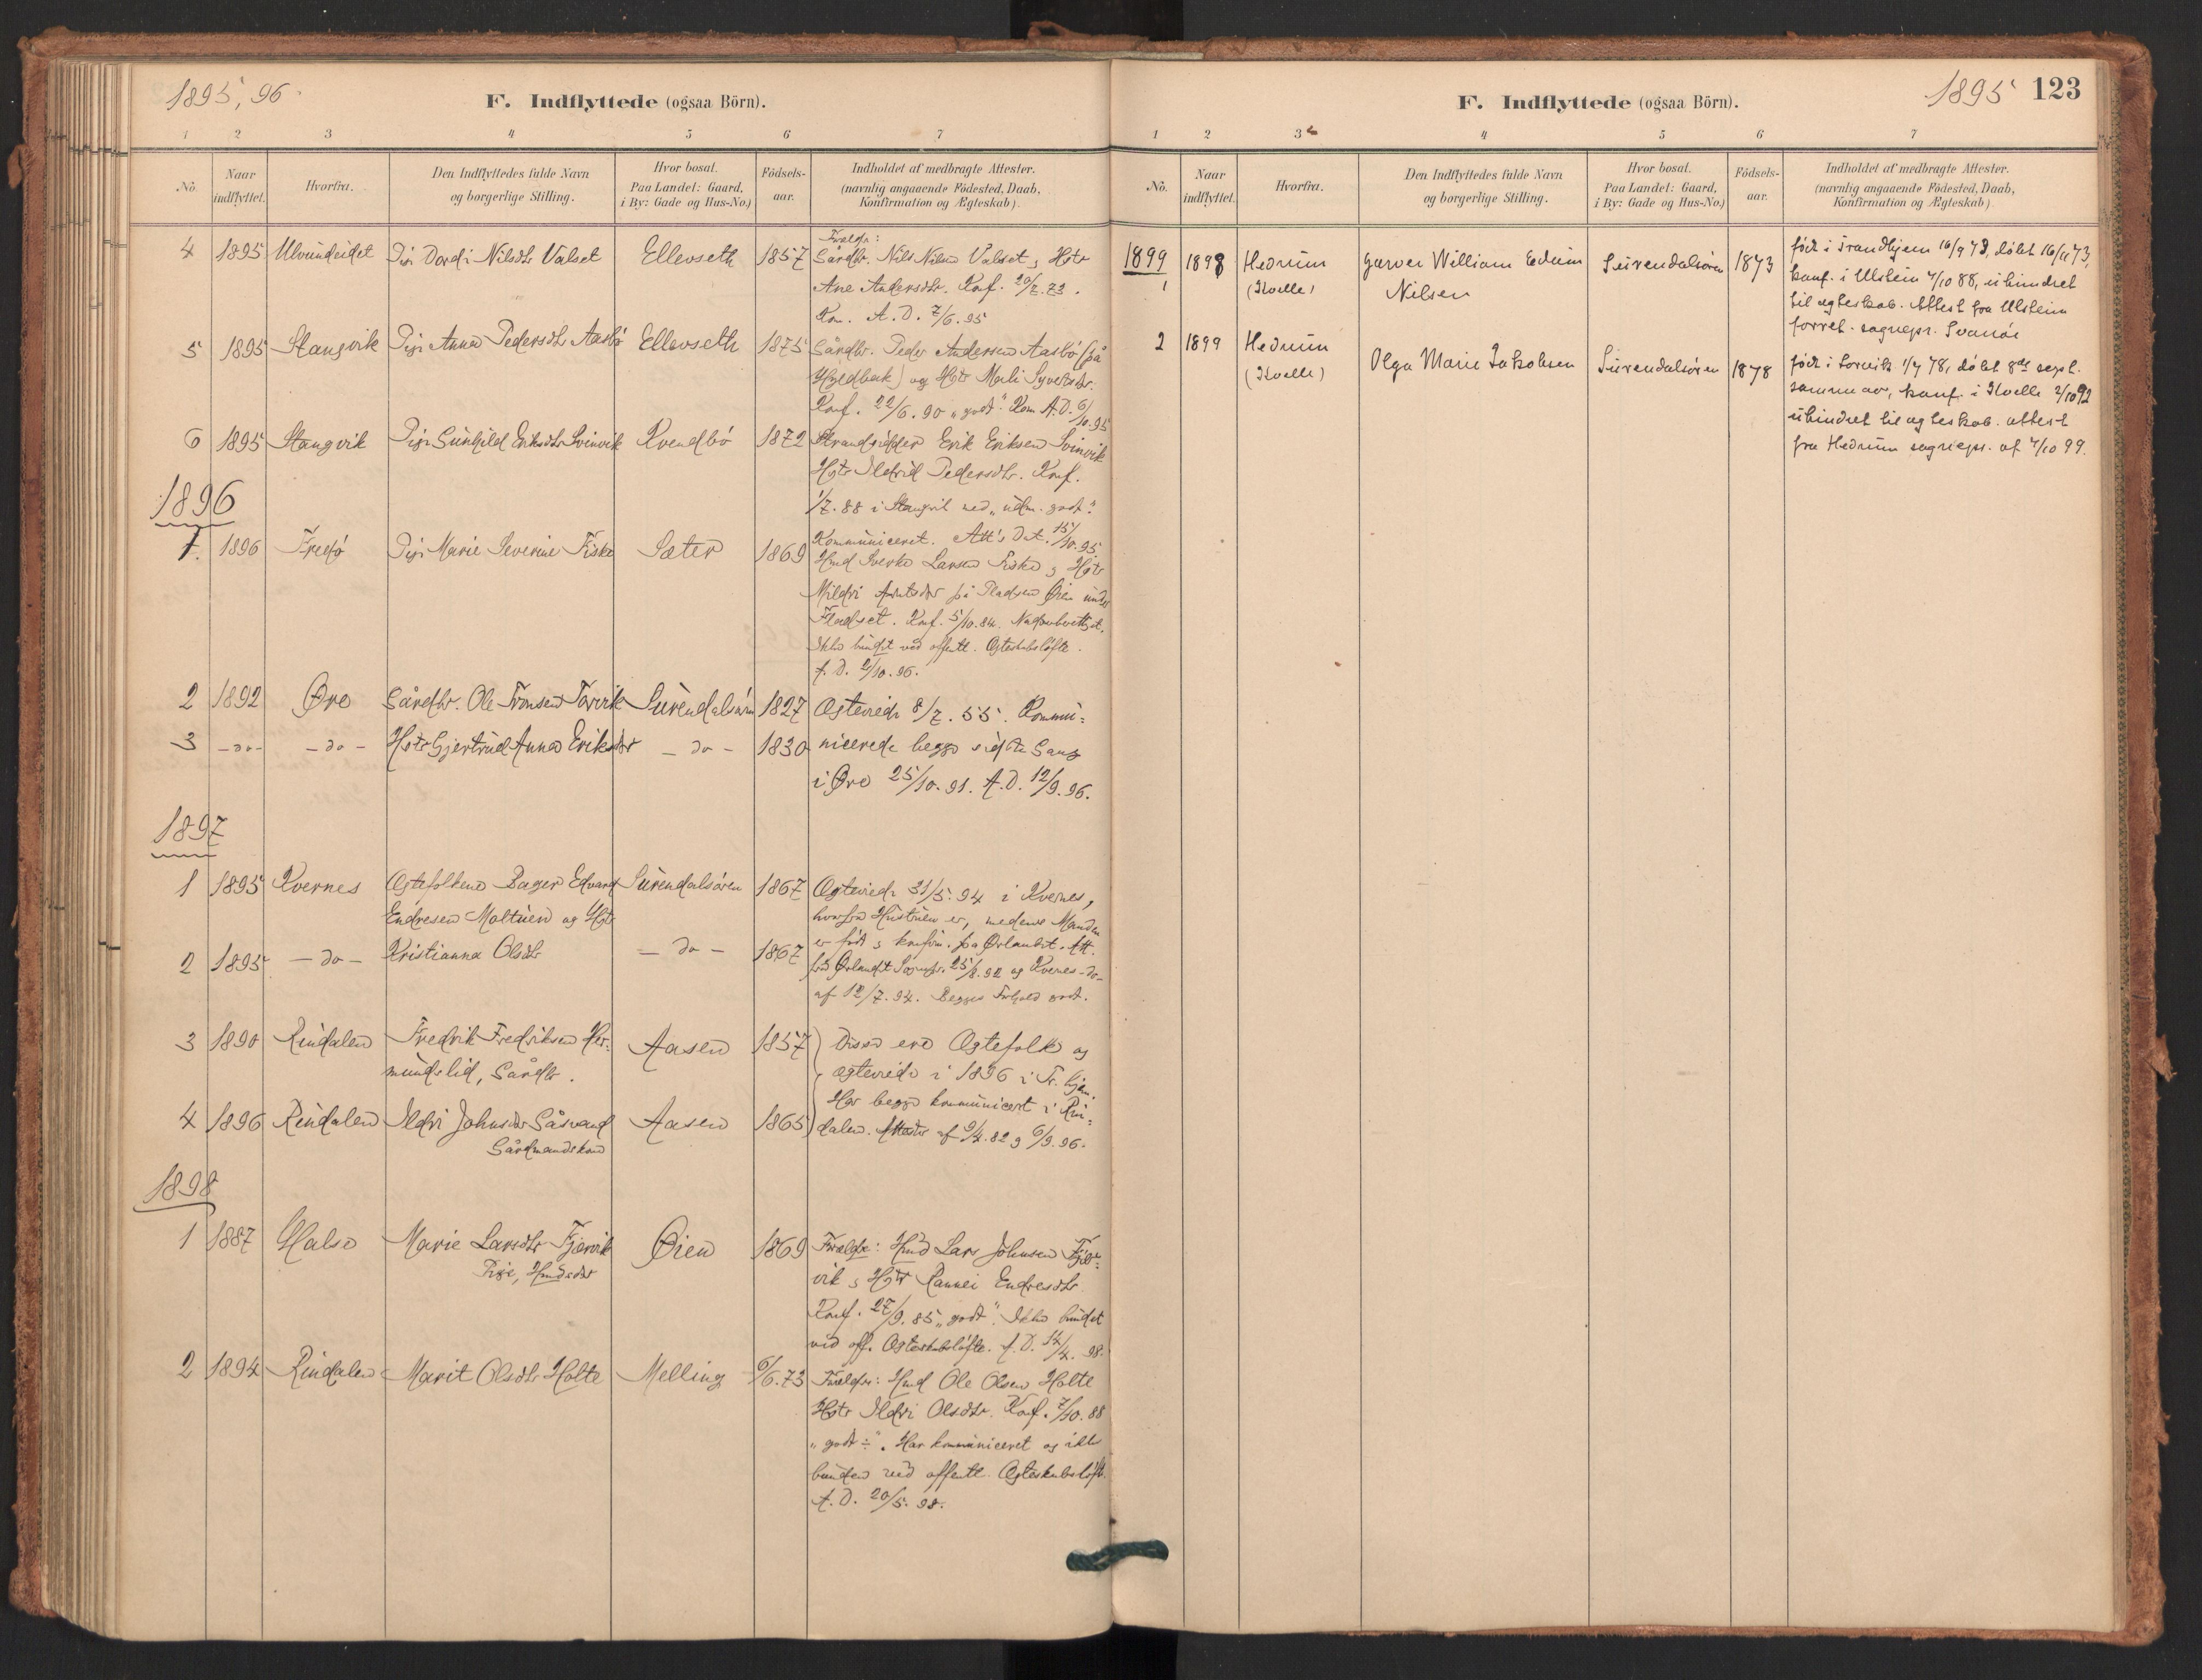 1895, 96.
F. Indflyttede (ogsaa Börn).
1 2 3 4 5 6 7
No.
Naar indflyttet.
Hvorfra.
Den Indflyttedes fulde Navn og borgerlige Stilling.
Hvor bosat. Paa Landet: Gaard, i By: Gade og Hus-No.)
Födsels-aar.
Indholdet af medbragte Attester. (navnlig angaaende Födested, Daab, Konfirmation og Ægteskab).
4 1895 Ulvundeidet Pige Dordi Nilsdtr Valset Ellevseth 1857 Forældr:
Gårdbr. Nils Nilsen Valset & Hstr
Ane Andersdtr. Konf. 20/7.73.
Kom. A.D. 7/6.95
5 1895 Stangvik Pige Anna Pedersdtr Aasbø Ellevseth 1875 Gårdbr. Peder Andersen Aasbø (på
Hyldbak) og Hstr Marli Syvertsdtr.
Konf. 22/6.90 "godt". Kom A.D. 6/10.95
6 1895 Stangvik Pige Gunhild Eriksdtr Svinvik Kvendbø 1872 Strandsidder Erik Eriksen Svinvik
Hstr Ildrid Pedersdtr. Konf.
1/7.88 i Stangvik med "udm. godt".
Kommuniceret. Att's Dat. 15/10.95.
1896
1. 1896 Fredø Pige Marie Severine Fiske Sæter 1869
Hmd Sverke Larsen Fiske & Hstr
Mildri på Pladsen Øien under
Fladset. Konf. 5/10.84.
Ikke bundet ved offentl. Ægteskabsløfte.
A.D. 2/10.96.
2 1892 Øre Gårdbr. Ole Tronsen Torvik Surendalsøren 1827 Ægteviede 8/7.55. Kommu-
3 -do- -do- Hstr Gjertrud Anna Eriksdtr -do- 1830 nicerede begge sidste Gang
i Øre 25/10.91. A.D. 12/9.96.
1897
1 1895 Kvernes Ægtefolkene Bager Edvard Surendalsøren 1867 Ægteviede 31/5.94 i Kvernes,
Endresen Moltuen og Hstr hvorfra Hustruen er, medens Manden
er født & konfirm. på Ørlandet. Att.
2 1895 -do- Kristianna Olsdtr -do- 1867
fra Ørlandet Sognepr. 25/8.92 og Kvernes -do-
af 12/7.94. Begges Forhold godt.
3 1890 Rindalen Fredrik Fredriksen Her- Aasen 1857 Disse ere Ægtefolk og
mundslid, Gårdbr. ægteviede i 1896 i Tr.hjem.
Har begge kommunicert i Rin-
4 1896 Rindalen Ildri Johnsdtr Gåsvand Aasen 1865 dalen. Attester af 9/4.82 & 6/9.96.
Gårdmandskone
1898
1 1887 Halse Marie Larsdtr Fjærvik Øien 1869 Forældre: Hmd Lars Johnsen Fjær-
Pige, Hmdsdtr vik & Hstr Rannei Endresdtr
Konf. 27/9.85 "godt". Ikke bundet
ved off. Ægteskabsløfte. A.D. 14/4.98.
2 1894 Rindalen Marit Olsdtr Holte Melling 6/6.73 Forældre: Hmd Ole Olsen Holte
Hstr Ildri Olsdtr. Konf. 7/10.88
"godt÷". Har kommuniceret og ikke
bunden ved offentl. Ægteskabsløfte.
A.D. 20/5.98.
F. Indflyttede (ogsaa Börn).
1895 123
1 2 3 4 5 6 7
No.
Naar indflyttet.
Hvorfra.
Den Indflyttedes fulde Navn og borgerlige Stilling.
Hvor bosat. Paa Landet: Gaard, i By: Gade og Hus-No.)
Födsels-aar.
Indholdet af medbragte Attester. (navnlig angaaende Födested, Daab, Konfirmation og Ægteskab).
1899
1 1898 Hedrum Garver William Edvin Surendalsøren 1873 født i Trondhjem 16/9 73, døbt 16/11 73,
(Kvelle) Nilsen konf. i Ulstein 7/10 88, uhindret
til ægteskab. Attest fra Ulstein
forret. sognepr. Svanøe
2 1899 Hedrum Olga Marie Jakobsen Surendalsøren 1878 født i Larvik 1/7 78, døbt 8de sept.
(Kvelle) samme aar, konf. i Kvelle 2/10 92
uhindret til ægteskab. attest
fra Hedrum sognepr. af 7/10 99.